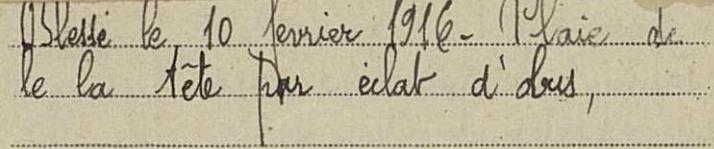 Blessé le 10 fevrier 1916 - Plaie de
le la tête par éclat d'obus,